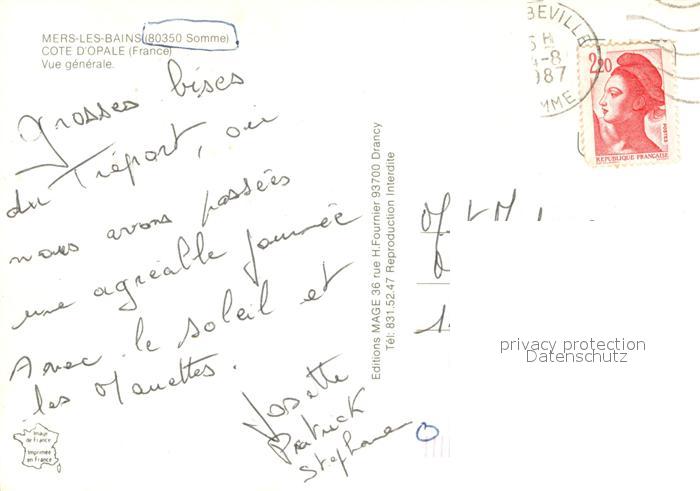 MERS-LES-BAINS (80350 Somme)
COTE D'OPALE (France)
Vue générale.
grosses bises
du Tréport, où
nous avons passées
une agréable journée
Avec le soleil et
les Mouettes.
Josette
Patrick
Stephane
Image
de France
Imprimée
en France
Editions MAGE 36 rue H.Fournier 93700 Drancy
Tél: 831.52.47 Reproduction Interdite
BEVILLE
4-8
1987
MME
2,20
POSTES
REPUBLIQUE FRANÇAISE
privacy protection
Datenschutz